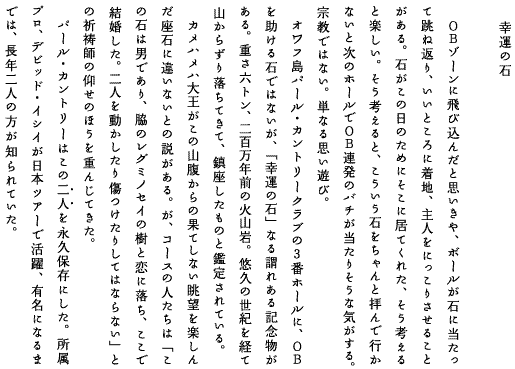 幸運の石
　ＯＢゾーンに飛び込んだと思いきや、ボールが石に当たっ
て跳ね返り、いいところに着地、主人をにっこりさせること
がある。石がこの日のためにそこに居てくれた、そう考える
と楽しい。そう考えると、こういう石をちゃんと拝んで行か
ないと次のホールでＯＢ連発のバチが当たりそうな気がする。
宗教ではない。単なる思い遊び。
　オワフ島パール・カントリークラブの３番ホールに、ＯＢ
を助ける石ではないが、「幸運の石」なる謂れある記念物が
ある。重さ六トン、二百万年前の火山岩。悠久の世紀を経て
山からずり落ちてきて、鎮座したものと鑑定されている。
　カメハメハ大王がこの山腹からの果てしない眺望を楽しん
だ座石に違いないとの説がある。が、コースの人たちは「こ
の石は男であり、脇のレグミノセイの樹と恋に落ち、ここで
結婚した。二人を動かしたり傷つけたりしてはならない」と
の祈祷師の仰せのほうを重んじてきた。
　パール・カントリーはこの二人を永久保存にした。所属
プロ、デビッド・イシイが日本ツアーで活躍、有名になるま
では、長年二人の方が知られていた。